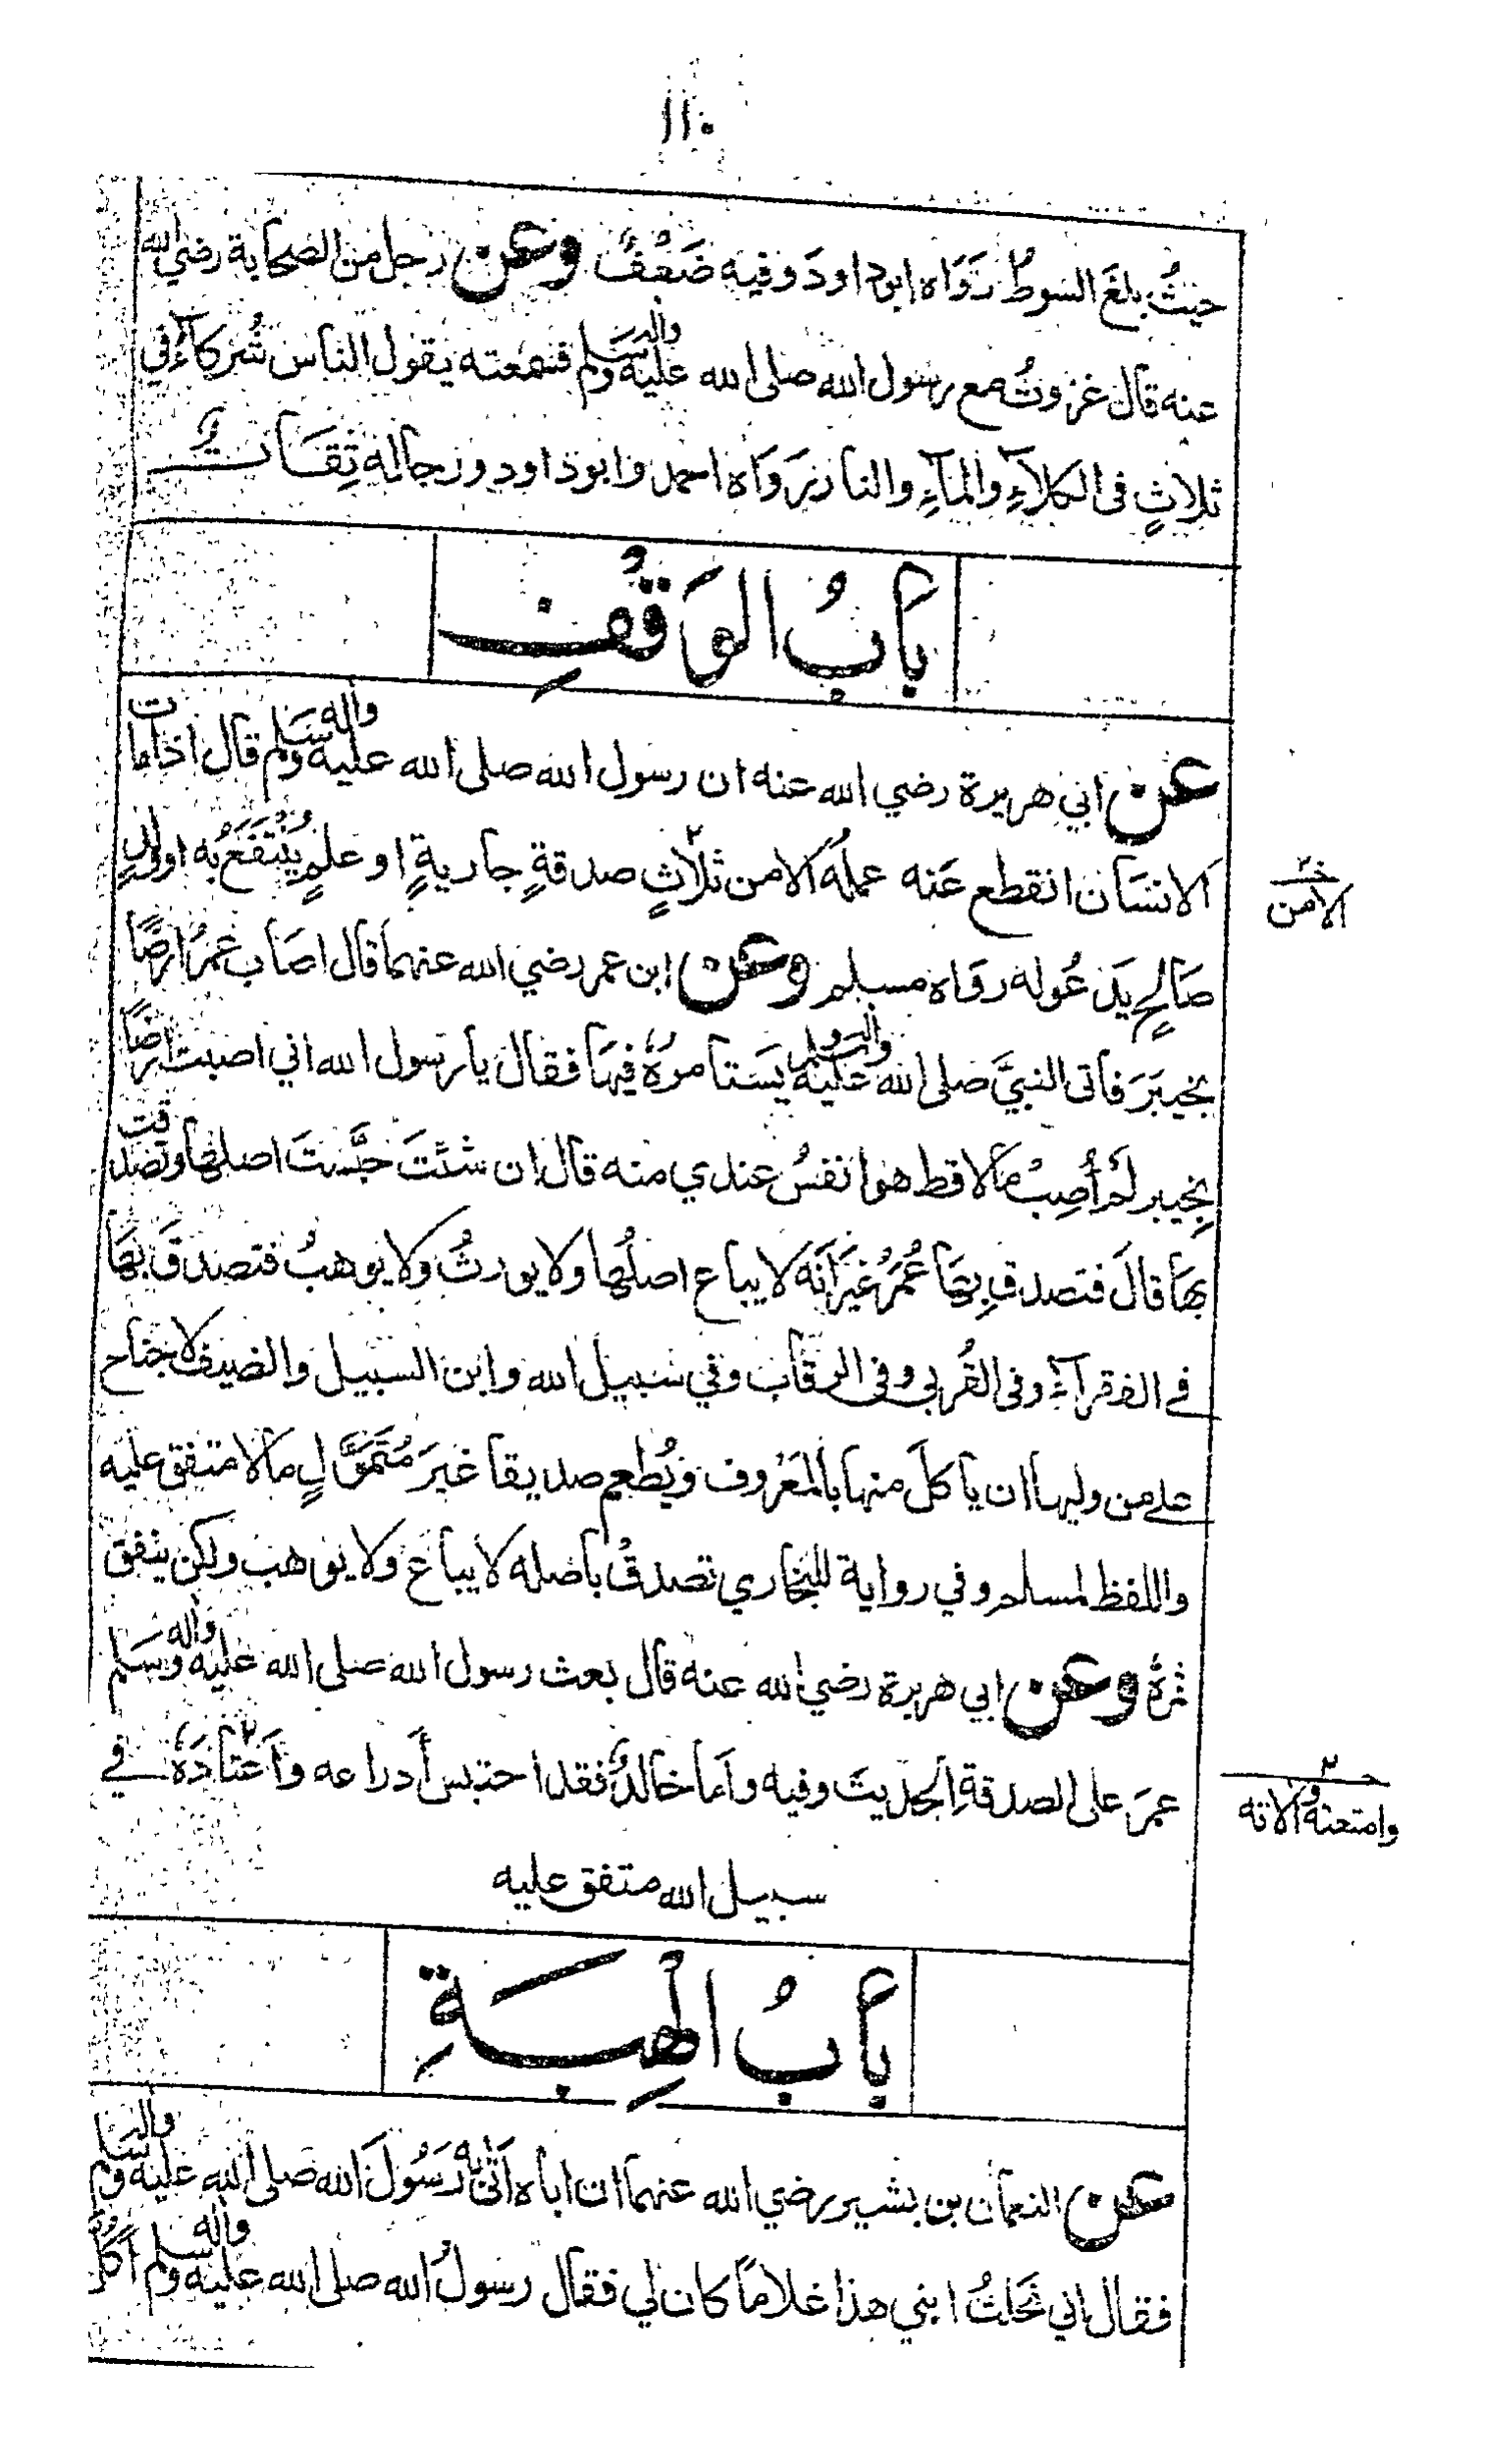 ١١٠
حيثُ بلغَ السوطُ رَوَاه ابوداودَ وفيه ضَعْفٌ وعن رجل من الصحابة رضي الله
عنه قال غزوتُ مع رسول الله صلى الله عليه واله وسلم فسمعته يقول الناس شُركآءُ في
ثلاثٍ في الكلاءِ والمآءِ والنار رَوَاه احمد وابو داود ورجاله ثِقَاتٌ
بابُ الوَقْفِ
عن ابي هريرة رضي الله عنه ان رسول الله صلى الله عليه واله وسلم قال اذا مات
الانسَان انقطع عَنه عملُه الا من ثلاثٍ صدقةٍ جاريةٍ او علمٍ يُنْتَفَعُ به او ولدٍ
الا من
صَالحٍ يَدْعُو له روَاه مسلم وعن ابن عمر رضي الله عنهما قال اصَاب عمرُ ارضًا
بخيبَرَ فاتى النبيَّ صلى الله عليه واله وسلم يَستامرُهُ فيهَا فقال يا رسول الله اني اصبت ارضًا
بِخيبر لم أُصِبْ مالا قط هو انفسُ عندي منه قال ان شئتَ حبَّستَ اصلها وتصدقت
بهَا قالَ فتصدق بِهَا عُمَرُ غيَرَ انَّه لا يباع اصلُها ولا يورثُ ولا يوهبُ فتصدقَ بهَا
في الفقرآءِ وفى القُربى وفى الرقاب وفي سبيل الله وابن السبيل والضيف لا جناح
على من وليها ان ياكلَ منها بالمَعْروف ويُطعم صديقا غيرَ مُتَمَوِّلٍ مالا متفق عليه
واللفظ لمسلم وفي رواية للبخاري تصدقْ باصله لا يباع ولا يوهب ولكن ينفق
ثمرهُ وعن ابي هريرة رضي الله عنه قال بعث رسول الله صلى الله عليه واله وسلم
عمرَ على الصدقةِ الحديثَ وفيه واَما خالدٌ فقد احتبس أَدراعه واَعتادَهُ في
وامتعته والاته
سبيل الله متفق عليه
بابُ الهِبَةِ
عن النعمان بن بشير رضي الله عنهما ان اباه اَتَى به رَسُولَ الله صلى الله عليه واله وسلم
فقال اني نَحَلتُ ابني هذا غلامًا كان لي فقال رسولُ الله صلى الله عليه واله وسلم أَكُلَّ